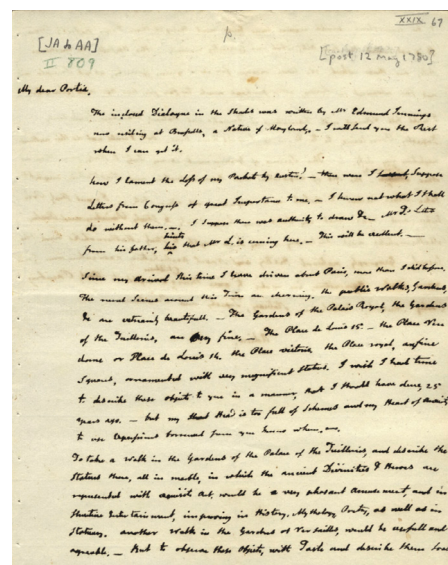 XXIX 67
[JA to AA]
II 809
[post 12 May 1780?]
My dear Portia,
The inclosed Dialogue in the Shades was written by Mr Edmund Jennings
now residing at Brussells, a Native of Maryland. — I will send you the Rest
when I can get it.
How I lament the Loss of my Packets by Austin! — There were I suppose
Letters from Congress of great Importance to me. — I know not what I shall
do without them. — I suppose there was authority to draw &c. Mr T's Letter
from his father, hints that Mr L. is coming here. — This will be excellent. —
Since my Arrival this time I have driven about Paris, more than I did before.
The rural Scenes around this Town are charming. The public Walks, Gardens,
&c are extreamly beautifull. — The Gardens of the Palais Royal, the Gardens
of the Tuilleries, are very fine. — The Place de Louis 15. — the Place Ven
dome or Place de Louis 14, the Place victoire, the Place royal, are fine
Squares, ornamented with very magnificent Statues. I wish I had time
to describe these objects to you in a manner, that I should have done, 25
Years ago. — but my Head is too full of Schemes and my Heart of Anxiety
to use Expressions borrowed from you know whom. —
To take a Walk in the Gardens of the Palace of the Tuilleries, and describe the
Statues there, all in marble, in which the ancient Divinities & Heroes are
represented with exquisite Art, would be a very pleasant Amusement, and in
structive Entertainment, improving in History, Mythology, Poetry, as well as in
Statuary. another Walk in the Gardens of Versailles, would be usefull and
agreable. — But to observe these Objects, with Taste and describe them so as